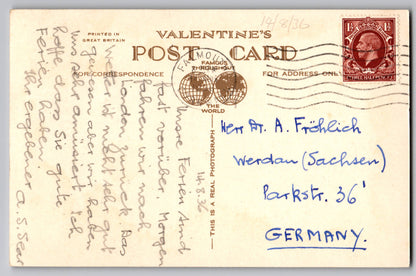 PRINTED IN
GREAT BRITAIN
VALENTINE'S
POST CARD
FOR CORRESPONDENCE
FAMOUS
THROUGHOUT
THE
WORLD
FOR ADDRESS ONLY
THIS IS A REAL PHOTOGRAPH
14/8/36
FALMOUTH
1½
1½
THREE HALFPENCE
14.8.36
Unsre Ferien sind
fast vorüber. Morgen
fahren wir nach
London zurück. Das
Wetter ist nicht sehr gut
gewesen aber wir haben
uns sehr amüsiert. Ich
hoffe dass Sie gute
Ferien haben.
Ihr ergebener
Herr Dr. A. Fröhlich
Werdau (Sachsen)
Parkstr. 36'
GERMANY.